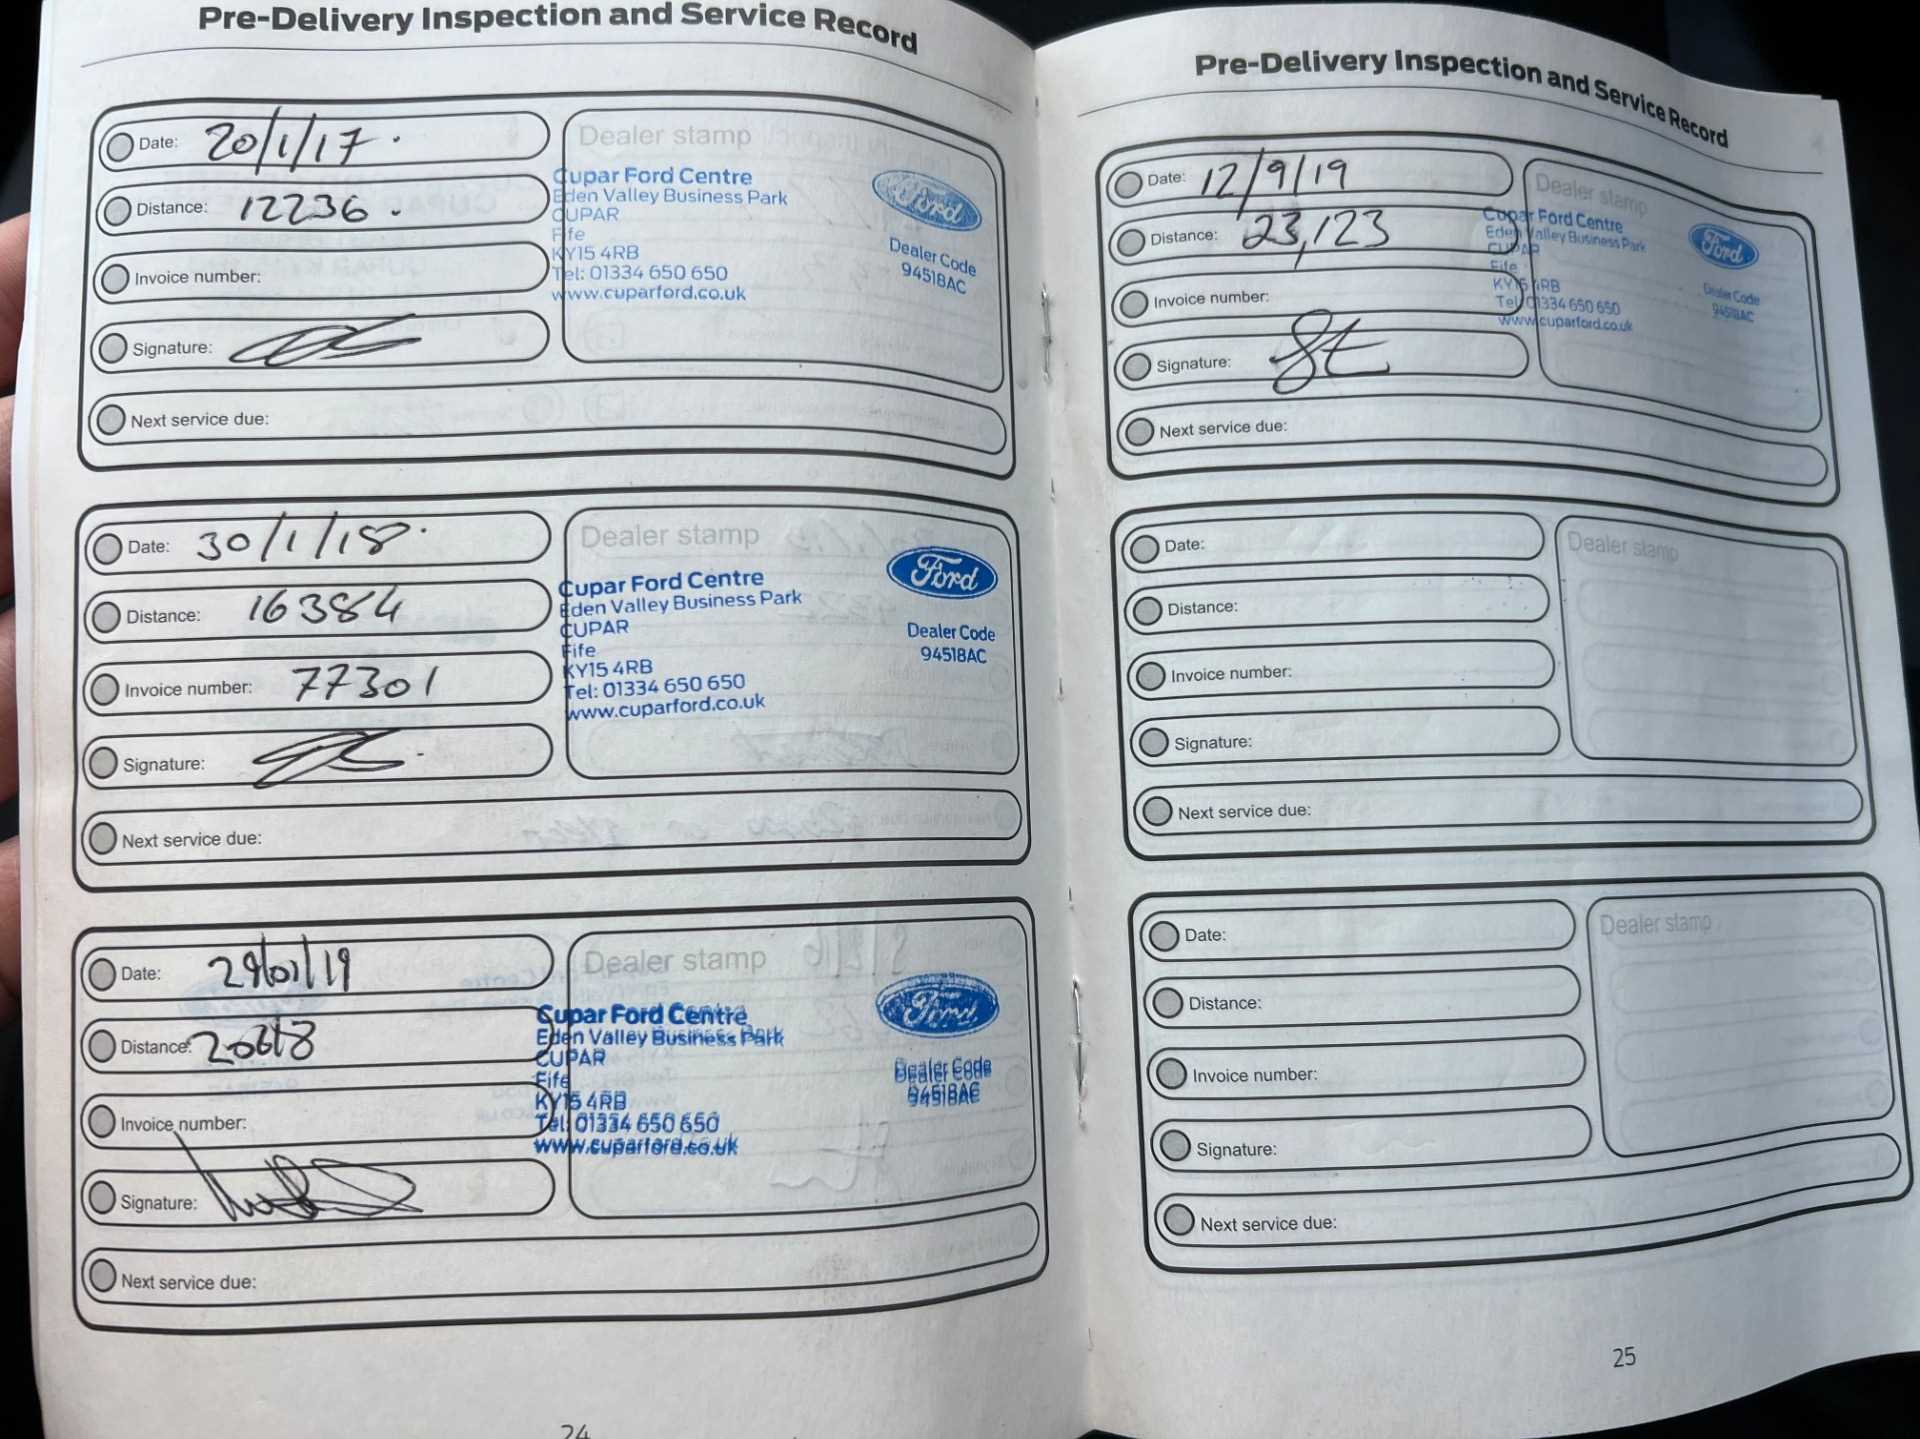 Pre-Delivery Inspection and Service Record
Date: 20/1/17.
Distance: 12236.
Invoice number:
Signature:
Next service due:
Dealer stamp
Cupar Ford Centre
Eden Valley Business Park
CUPAR
Fife
KY15 4RB
Tel: 01334 650 650
www.cuparford.co.uk
Ford
Dealer Code
94518AC
Date: 30/1/18.
Distance: 16384
Invoice number: 77301
Signature:
Next service due:
Dealer stamp
Cupar Ford Centre
Eden Valley Business Park
CUPAR
Fife
KY15 4RB
Tel: 01334 650 650
www.cuparford.co.uk
Ford
Dealer Code
94518AC
Date: 29/01/19
Distance:
Invoice number:
Signature:
Next service due:
Dealer stamp
Cupar Ford Centre
Eden Valley Business Park
CUPAR
Fife
KY15 4RB
Tel: 01334 650 650
www.cuparford.co.uk
Ford
Dealer Code
94518AC
24
Pre-Delivery Inspection and Service Record
Date: 12/9/19
Distance: 23,123
Invoice number:
Signature:
Next service due:
Dealer stamp
Cupar Ford Centre
Eden Valley Business Park
CUPAR
Fife
KY15 4RB
Tel: 01334 650 650
www.cuparford.co.uk
Ford
Dealer Code
94518AC
Date:
Distance:
Invoice number:
Signature:
Next service due:
Dealer stamp
Date:
Distance:
Invoice number:
Signature:
Next service due:
Dealer stamp
25